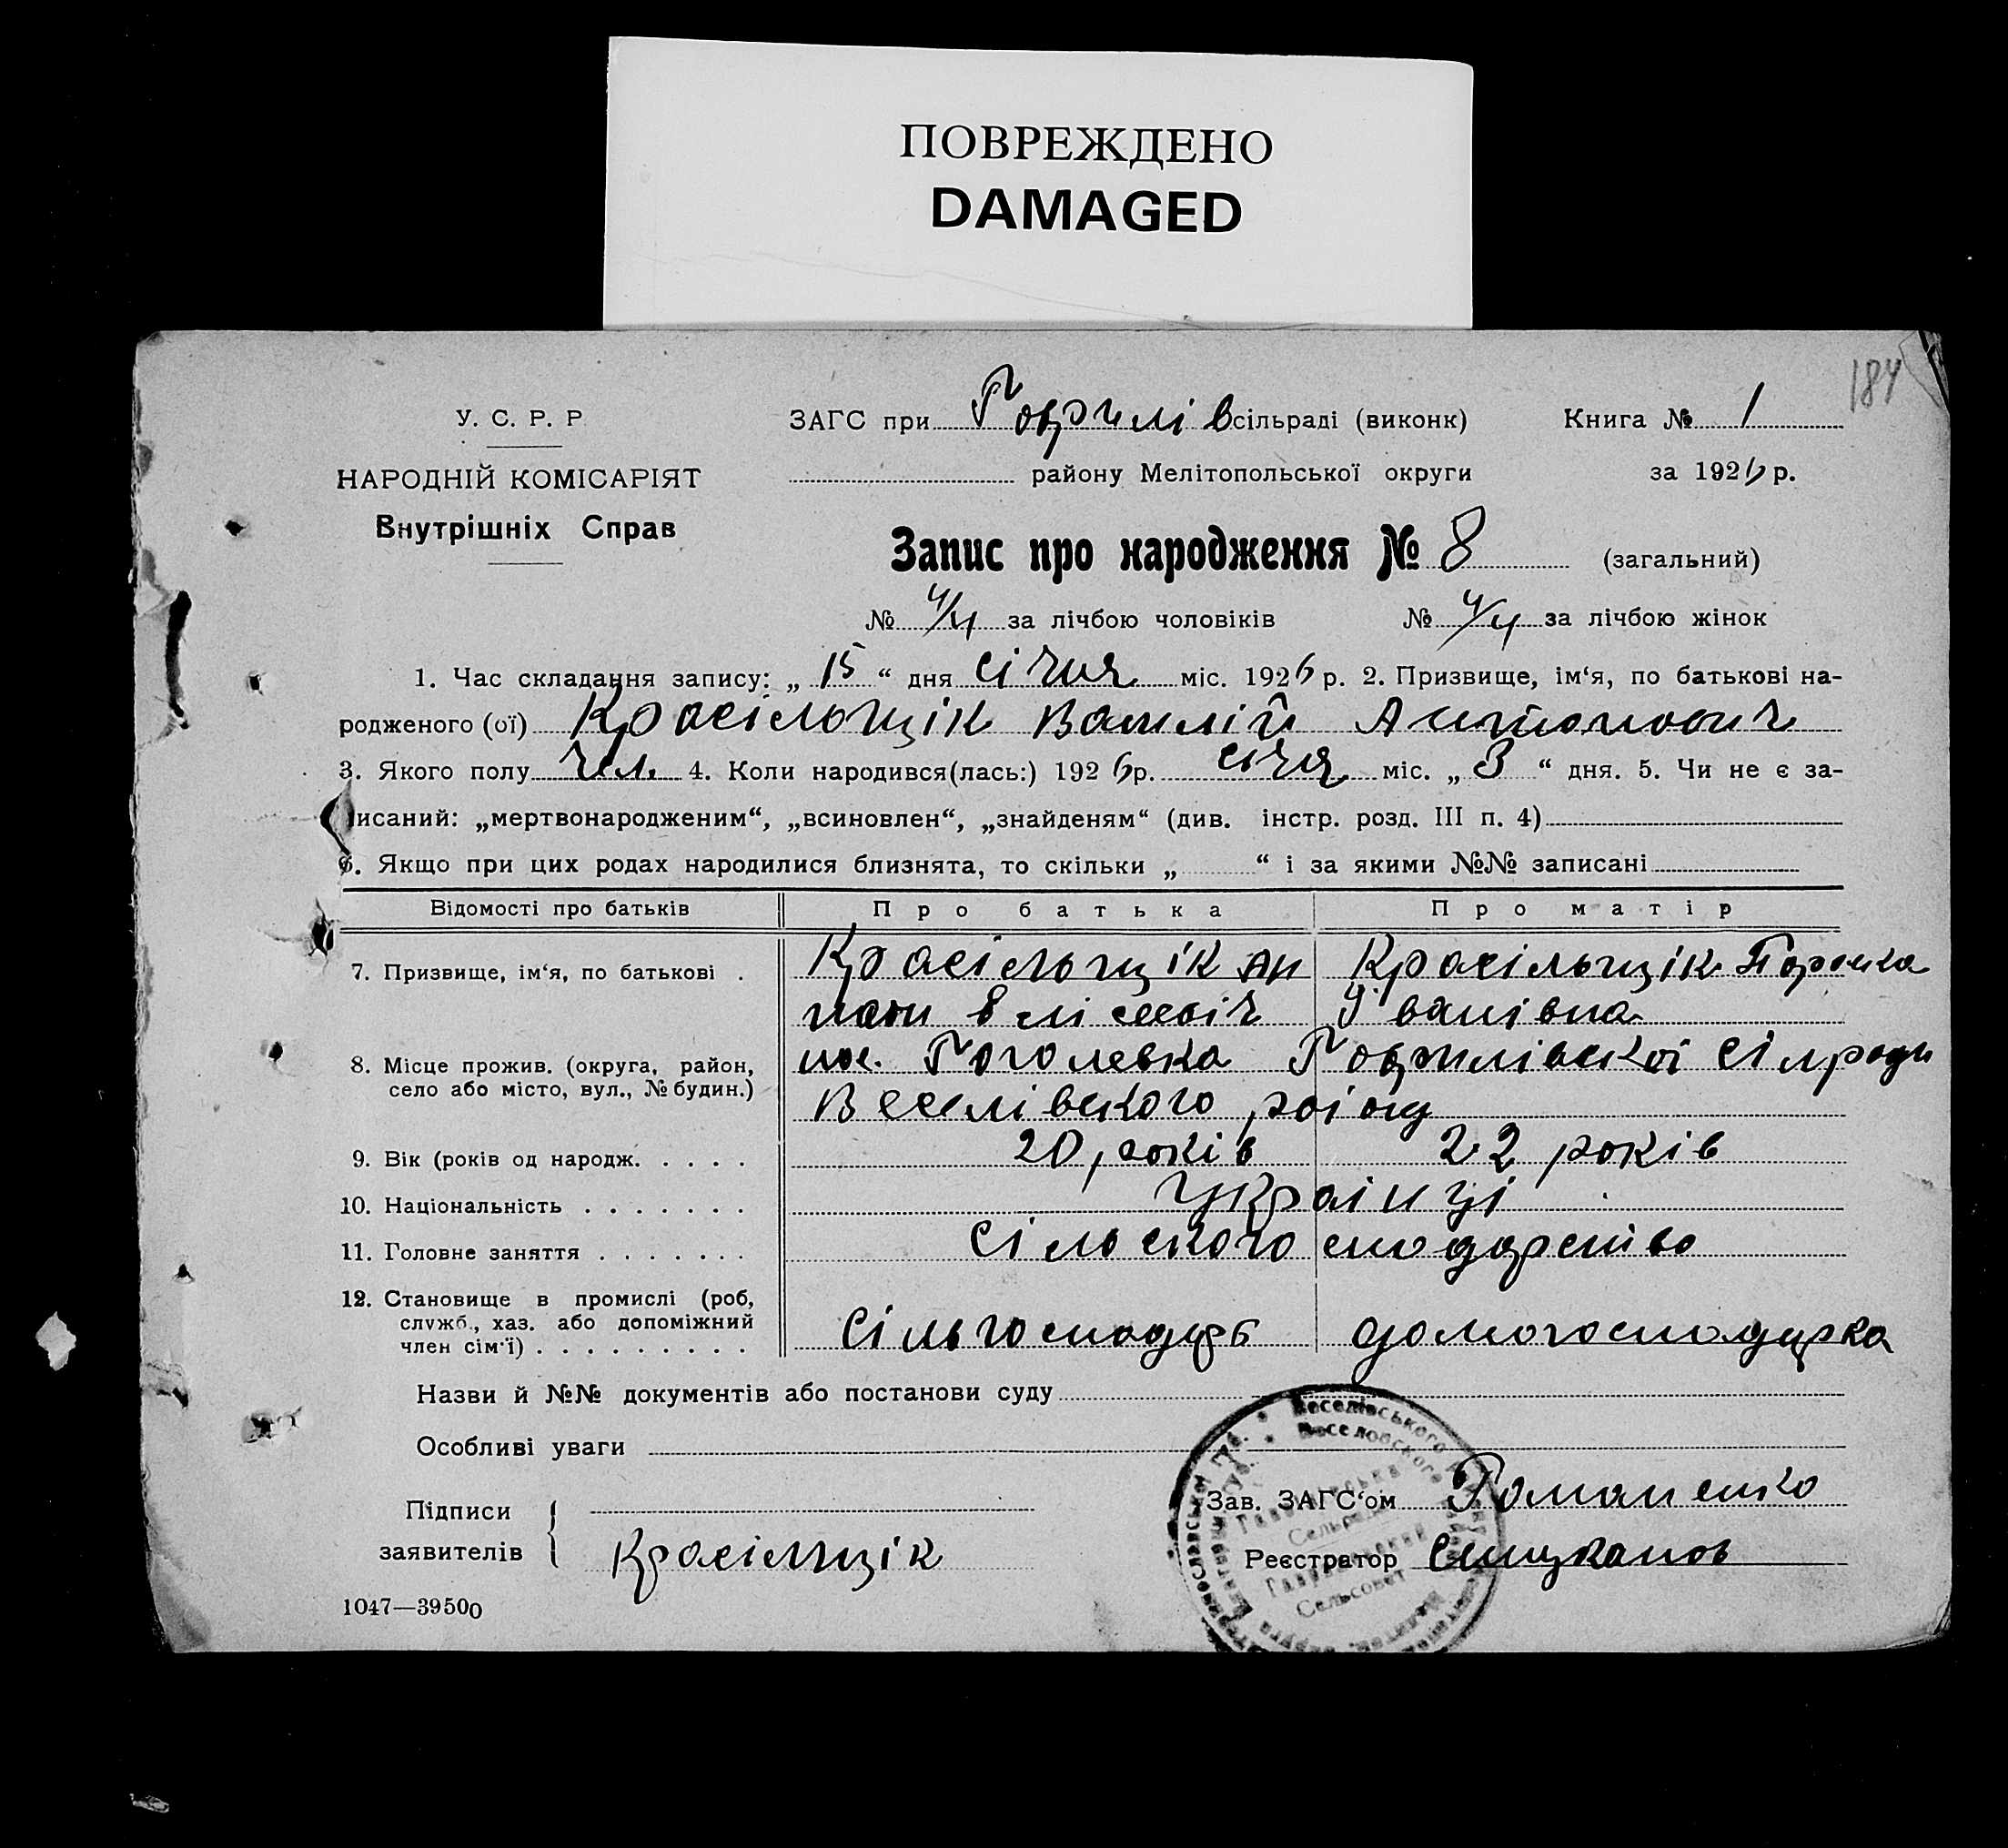 ПОВРЕЖДЕНО
DAMAGED
184
У. С. Р. Р
ЗАГС при Гаврилів сільраді (виконк)
Книга № 1
НАРОДНІЙ КОМІСАРІЯТ
району Мелітопольської округи
за 1926 р.
Внутрішніх Справ
Запис про народження № 8 (загальний)
№ 4/4 за лічбою чоловіків № 4/4 за лічбою жінок
1. Час складання запису: „ 15 “ дня січня міс. 1926 р. 2. Призвище, ім‘я, по батькові на-
родженого (ої) Красільщік Василій Антонович
3. Якого полу чол. 4. Коли народився(лась:) 1926 р. січя міс. „ 3 “ дня. 5. Чи не є за-
писаний: „мертвонародженим“, „всиновлен“, „знайденям“ (див. інстр. розд. III п. 4)
6. Якщо при цих родах народилися близнята, то скільки „ “ і за якими №№ записані
Відомості про батьків Про батька Про матір
7. Призвище, ім‘я, по батькові . Красільщік Ан Красільщік
Іванівна
8. Місце прожив. (округа, район, пос. Гоголевка Гаврилівскої сілради
село або місто, вул., № будин.)
Веселівского раіону
9. Вік (років од народж. . . . . 20 років 22 років
10. Національність . . . . . . . Українці
11. Головне заняття . . . . . . . Сільскогосподарство
12. Становище в промислі (роб,
служб., хаз. або допоміжний
член сім‘ї) . . . . . . . . . Сільгосподарь домогосподарка
Назви й №№ документів або постанови суду
Особливі уваги
Веселівського
Веселовского
Підписи
заявителів
Красілщік
Зав. ЗАГС‘ом Романенко
Сельрада
Реєстратор
Сельсовет
1047—39500